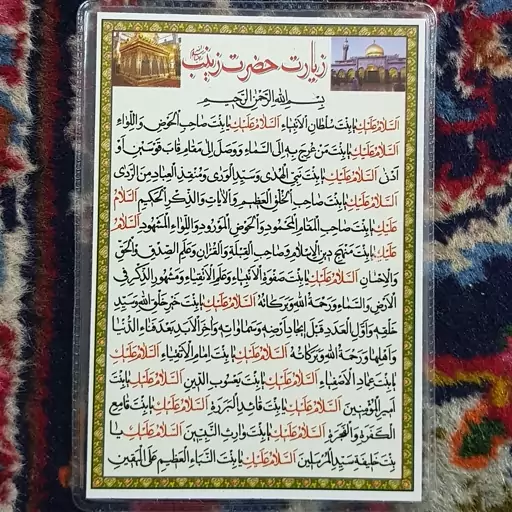 زیارت حضرت زینب
بِسْمِ اللهِ الرَّحْمنِ الرَّحیمِ
اَلسَّلامُ عَلَیْكِ یا بِنْتَ سُلْطانِ الْاَنْبِیاءِ اَلسَّلامُ عَلَیْكِ یا بِنْتَ صاحِبِ الْحَوْضِ وَ اللِّواءِ
اَلسَّلامُ عَلَیْكِ یا بِنْتَ مَنْ عُرِجَ بِهِ اِلَی السَّماءِ وَ وُصِلَ اِلی مَقامِ قابَ قَوْسَیْنِ اَوْ
اَدْنی اَلسَّلامُ عَلَیْكِ یا بِنْتَ نَبِیِّ الْهُدی وَ سَیِّدِ الْوَری وَ مُنْقِذِ الْعِبادِ مِنَ الرَّدی
اَلسَّلامُ عَلَیْكِ یا بِنْتَ صاحِبِ الْخُلُقِ الْعَظیمِ وَ الْآیاتِ وَ الذِّکْرِ الْحَکیمِ اَلسَّلامُ
عَلَیْكِ یا بِنْتَ صاحِبِ الْمَقامِ الْمَحْمُودِ وَ الْحَوْضِ الْمَوْرُودِ وَ اللِّواءِ الْمَشْهُودِ اَلسَّلامُ
عَلَیْكِ یا بِنْتَ مَنْهَجِ دینِ الْاِسْلامِ وَ صاحِبِ الْقِبْلَةِ وَ الْقُرْآنِ وَ عَلَمِ الصِّدْقِ وَ الْحَقِّ
وَ الْاِحْسانِ اَلسَّلامُ عَلَیْكِ یا بِنْتَ صَفْوَةِ الْاَنْبِیاءِ وَ عَلَمِ الْاَتْقِیاءِ وَ مَشْهُورِ الذِّکْرِ فِی
الْاَرْضِ وَ السَّماءِ وَ رَحْمَةُ اللهِ وَ بَرَکاتُهُ اَلسَّلامُ عَلَیْكِ یا بِنْتَ خَیْرِ خَلْقِ اللهِ وَ سَیِّدِ
خَلْقِهِ وَ اَوَّلِ الْعَدَدِ قَبْلَ ایجادِ اَرْضِهِ وَ سَماواتِهِ وَ آخِرِ الْاَبَدِ بَعْدَ فَناءِ الدُّنْیا
وَ اَهْلِها وَ رَحْمَةُ اللهِ وَ بَرَکاتُهُ اَلسَّلامُ عَلَیْكِ یا بِنْتَ اِمامِ الْاَتْقِیاءِ اَلسَّلامُ عَلَیْكِ
یا بِنْتَ عِمادِ الْاَصْفِیاءِ اَلسَّلامُ عَلَیْكِ یا بِنْتَ یَعْسُوبِ الدّینِ اَلسَّلامُ عَلَیْكِ یا بِنْتَ
اَمیرِ الْمُؤْمِنینَ اَلسَّلامُ عَلَیْكِ یا بِنْتَ قائِدِ الْبَرَرَةِ اَلسَّلامُ عَلَیْكِ یا بِنْتَ قامِعِ
الْکَفَرَةِ وَ الْفَجَرَةِ اَلسَّلامُ عَلَیْكِ یا بِنْتَ وارِثِ النَّبِیّینَ اَلسَّلامُ عَلَیْكِ یا
بِنْتَ خَلیفَةِ سَیِّدِ الْمُرْسَلینَ اَلسَّلامُ عَلَیْكِ یا بِنْتَ النَّبَاءِ الْعَظیمِ عَلَی الْیَقینِ